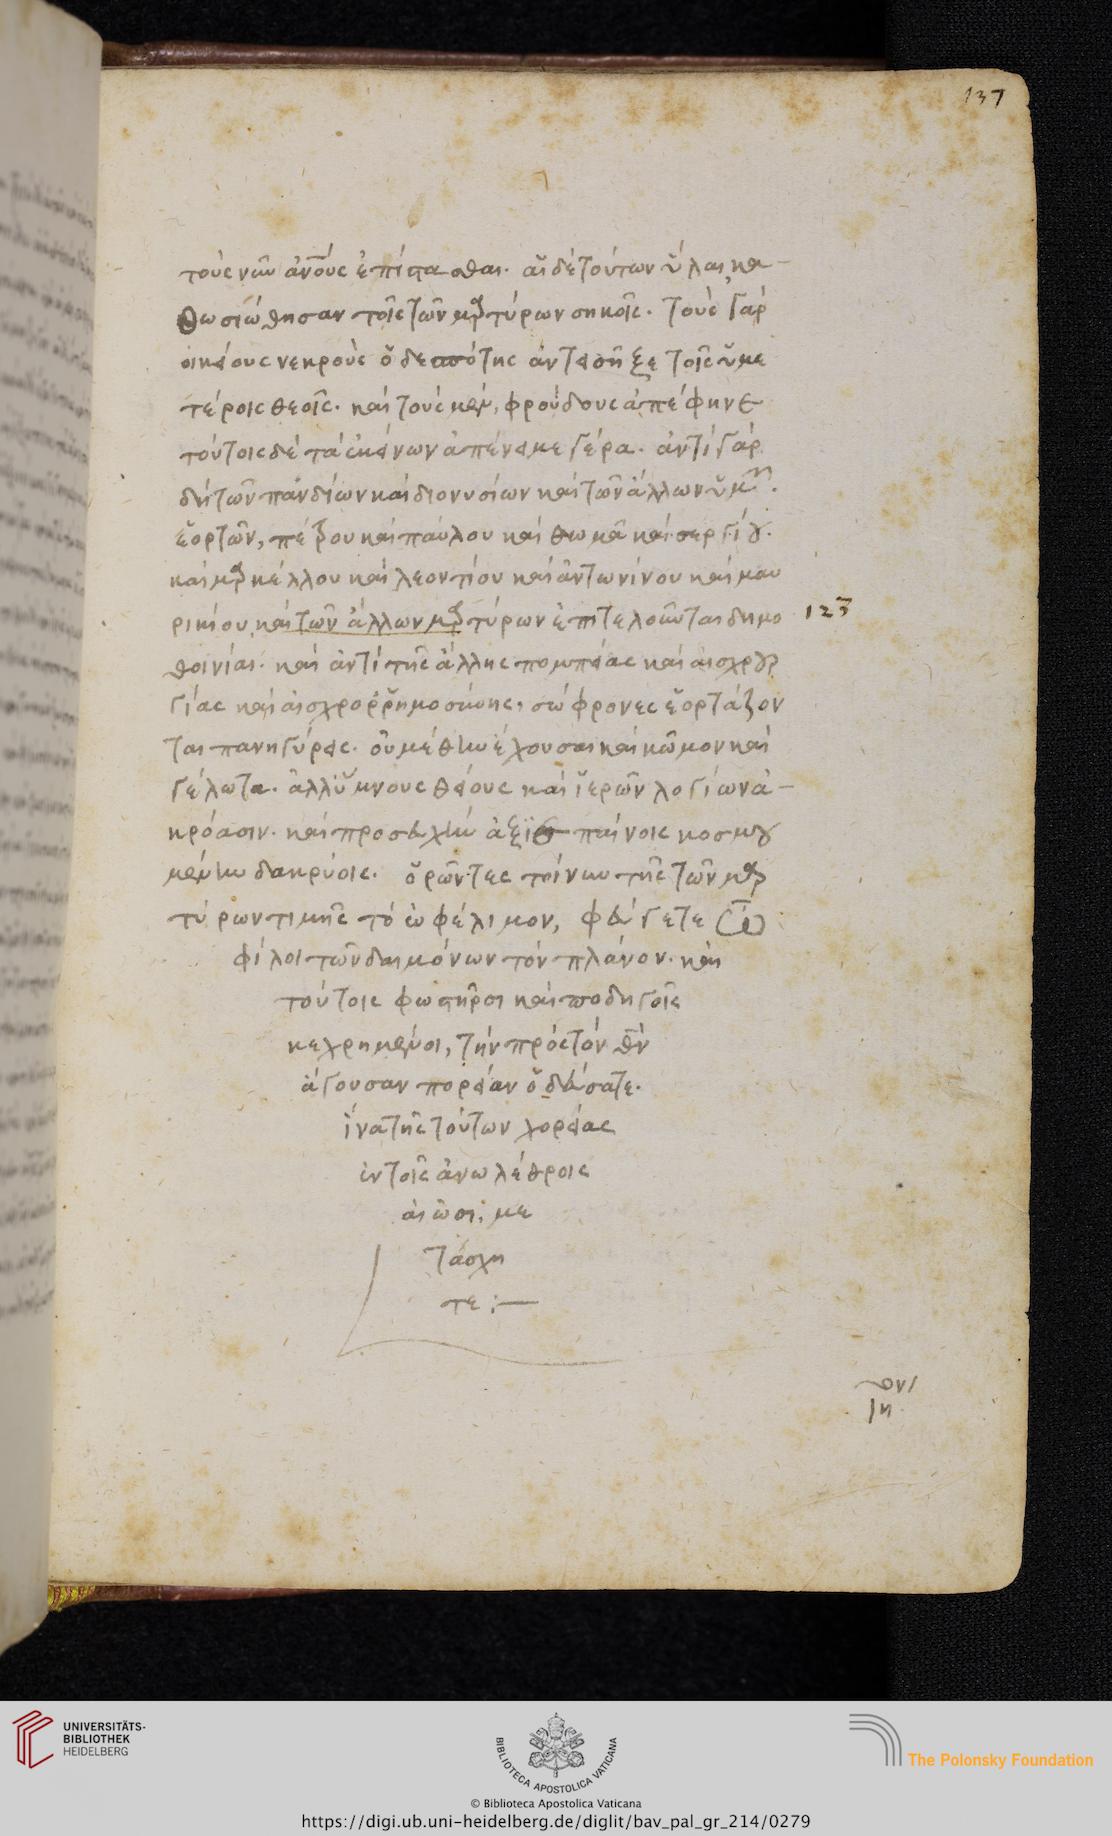 137
τοὺς νῦν ἀν̅ο̅υς ἐπίστασθαι. αἱ δὲ τούτων ὗλαι κα-
θωσιώθησαν τοῖς τῶν μρτύρων σηκοῖς. τοὺς γὰρ
οἰκείους νεκροὺς ὁ δεσπότης ἀντεισῆξε τοῖς ὑμε
τέροις θεοῖς. καὶ τοὺς μὲν, φρούδους ἀπέφηνε
τούτοις δὲ τὰ ἐκείνων ἀπένειμε γέρα. ἀντὶ γὰρ
δὴ τῶν πανδίων καὶ διονυσίων καὶ τῶν ἄλλων ὑμῶν.
ἑορτῶν, πέτρου καὶ παύλου καὶ θωμᾶ καὶ σεργίου.
καὶ μρκέλλου καὶ λεοντίου καὶ ἀντωνίνου καὶ μαυ
ρικίου καὶ τῶν ἄλλων μρτύρων ἐπιτελοῦνται δημο
123
θοινίαι. καὶ ἀντὶ τῆς ἄλλης πομπείας καὶ αἰσχρουρ
γίας καὶ αἰσχρορρημοσύνης, σώφρονες ἑορτάζον
ται πανηγύρεις. οὐ μέθην ἔχουσαι καὶ κῶμον καὶ
γέλωτα. ἀλλ' ὕμνους θείους καὶ ἱερῶν λογίων ἀ-
κρόασιν. καὶ προσευχὴν ἀξιεπαίνοις κοσμου
μένην δακρύοις. ὁρῶντες τοίνυν τῆς τῶν μαρ
τύρων τιμῆς τὸ ὠφέλιμον, φεύγετε ὦ
φίλοι τῶν δαιμόνων τὸν πλάνον. καὶ
τούτοις φωστῆρσι καὶ ποδηγοῖς
κεχρημένοι, τὴν πρὸς τὸν θ̅ν̅
ἄγουσαν πορείαν ὁδεύσατε.
ἵνα τῆς τούτων χορείας
ἐν τοῖς ἀνωλέθροις
αἰῶσι, με
τάσχη
τε :—
UNIVERSITÄTS-
BIBLIOTHEK
HEIDELBERG
BIBLIOTECA APOSTOLICA VATICANA
The Polonsky Foundation
© Biblioteca Apostolica Vaticana
https://digi.ub.uni-heidelberg.de/diglit/bav_pal_gr_214/0279